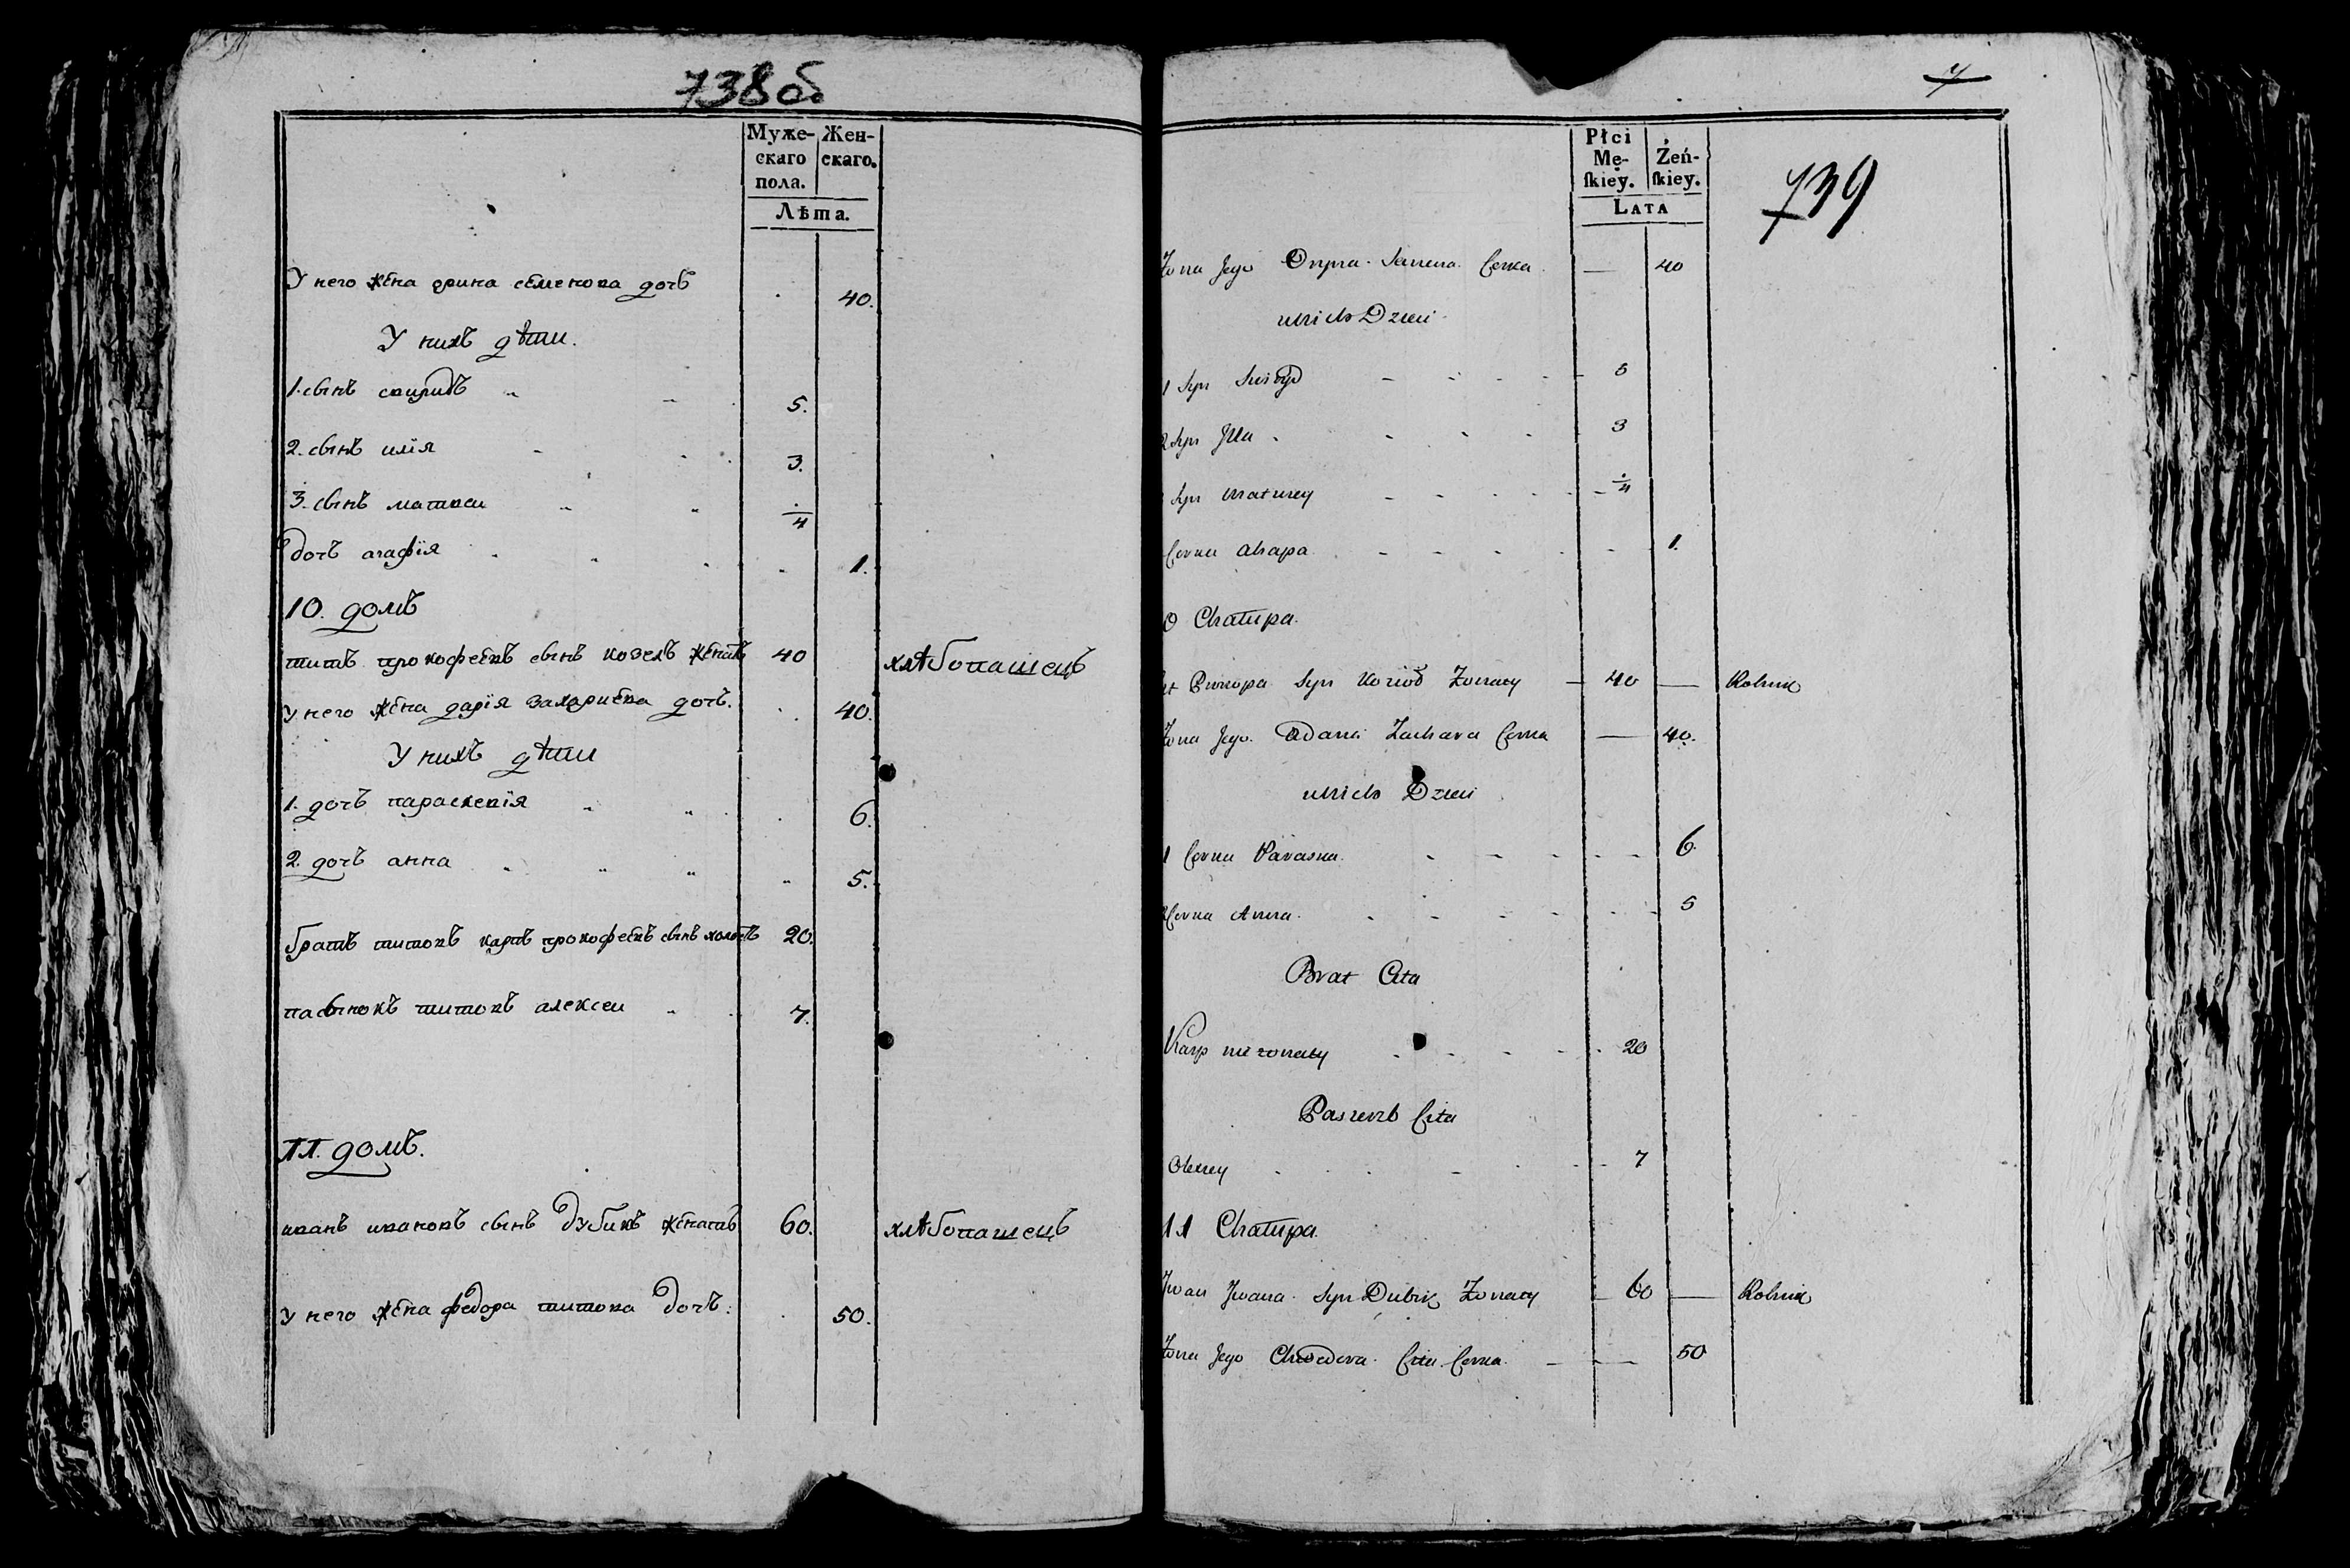 738об
Муже- Жен-
скаго скаго.
пола.
Лѣта.
У него жена ѳрина семенова дочъ 40.
У нихъ дѣти.
1. сынъ спиридъ 5.
2. сынъ илїя 3.
3. сынъ матвеи 1/4
дочъ агафїя 1.
10. домъ
титъ прокофеевъ сынъ козелъ женатъ 40 хлѣбопашецъ
У него жена дарїя захариева дочъ. 40.
У нихъ дѣти
1. дочъ параскевїя 6.
2. дочъ анна 5.
братъ титовъ карпъ прокофеевъ сынъ холостъ 20.
пасынокъ титовъ алексеи 7.
11. домъ.
иванъ ивановъ сынъ дубикъ женатъ 60. хлѣбопашецъ
У него жена федора титова дочъ: 50.
4
739
Płci
Mę- Żeń-
skiey. skiey.
LATA
Żona Jego Semena Corka — 40
u nich Dzieci
1 Syn 5
2 Syn Illa 3
Syn Matwiey 1/4
Corka Ahapa 1.
0 Chałupa.
Prokopa Syn Kozioł Żonaty — 40 — Rolnik
Żona Jego Odaria Zachara Corka — 40.
u nich Dzieci
1 Corka Paraska 6.
2 Corka Anna 5
Brat Cita
Karp nie żonaty 20
Pasierzb Cita
Olexiey 7
11 Chałupa.
Iwan Iwana Syn Dubik Żonaty — 60 — Rolnik
Żona Jego Chwedora Cita Corka — 50